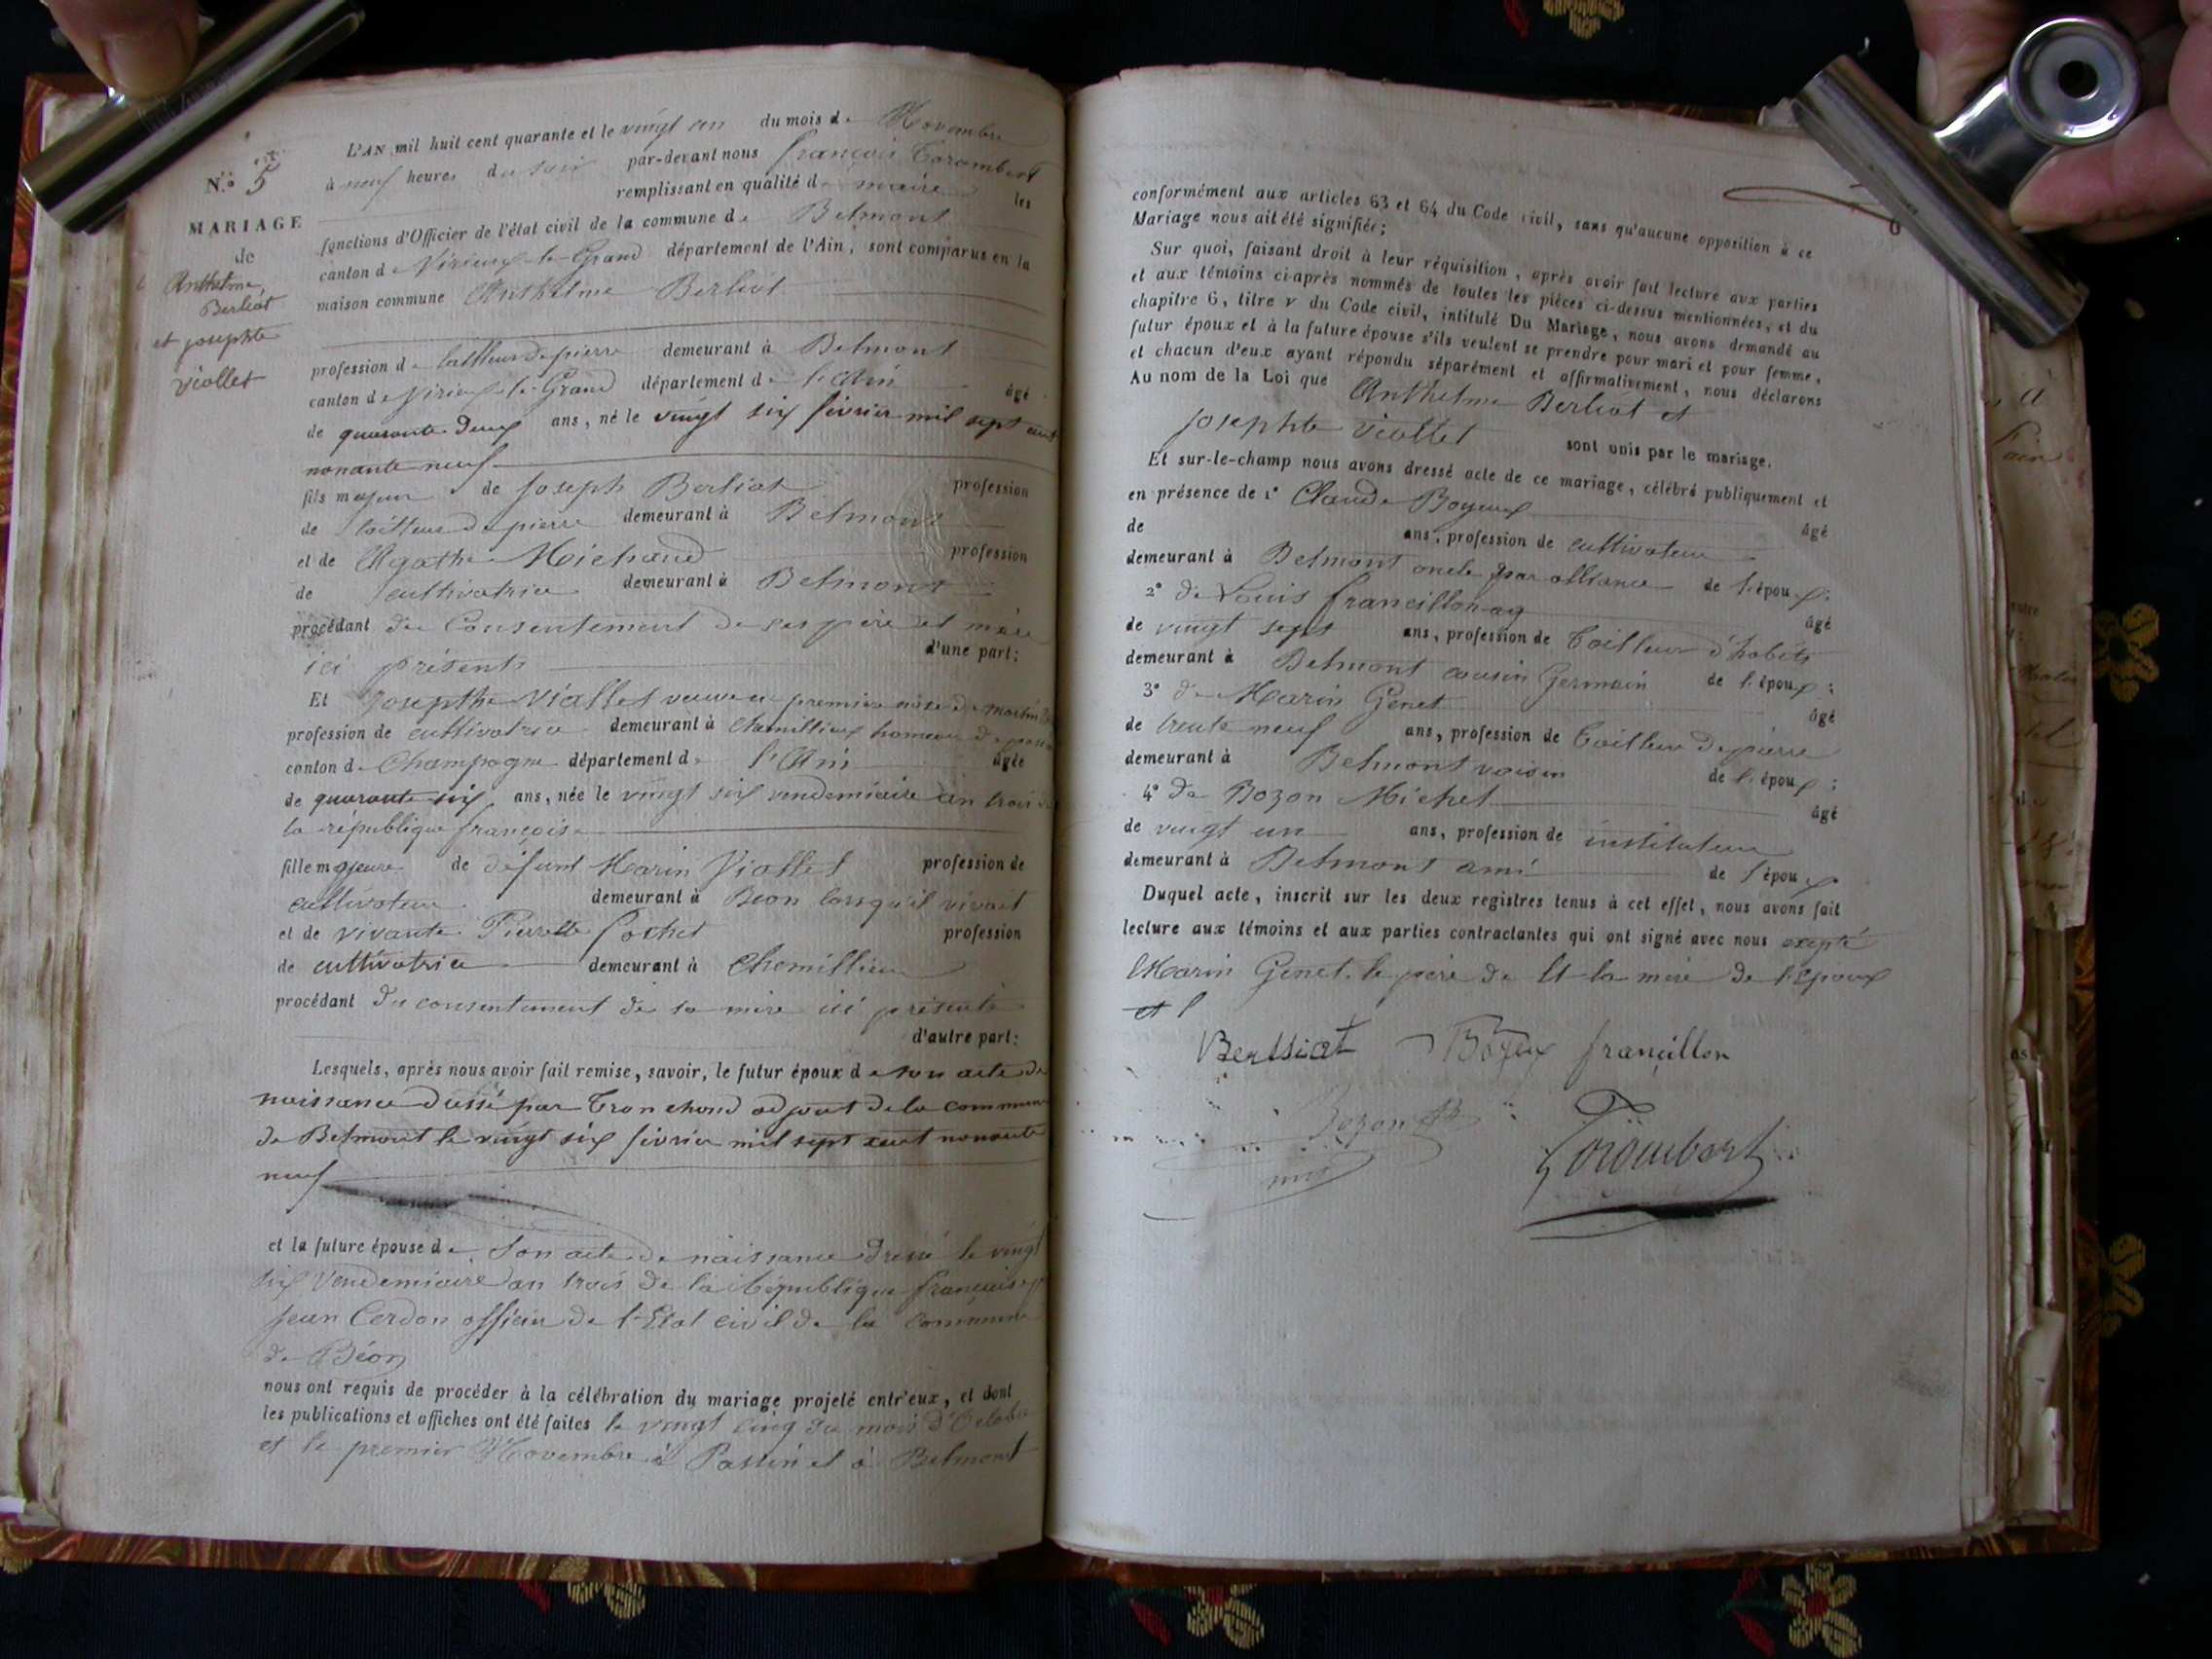 N.o 5
MARIAGE
de
Anthelme
Berliat
et josephte
viollet
L'AN mil huit cent quarante et le vingt un du mois de Novembre
à neuf heures du soir par-devant nous françois Torombert
remplissant en qualité de maire les
fonctions d'Officier de l'état civil de la commune de Belmont
canton de Virieux-le-Grand département de l'Ain, sont comparus en la
maison commune Anthelme Berliat
profession de tailleur de pierre demeurant à Belmont
canton de Virieux-le-Grand département de l'Ain âgé
de quarante deux ans, né le vingt six février mil sept cent
nonante neuf
fils majeur de Joseph Berliat profession
de tailleur de pierre demeurant à Belmont
et de Agathe Michaud profession
de cultivatrice demeurant à Belmont
procédant du Consentement de ses père et mère
ici présents d'une part;
Et Josepthe Viallet veuve en premier de martin
profession de cultivatrice demeurant à Chemillieux hameau de
canton de Champagne département de l'Ain âgée
de quarante six ans, née le vingt six vendemiaire an trois de
la république françoise
fille majeure de défunt Marin Viallet profession de
cultivateur demeurant à Béon lorsqu'il vivait
et de vivante Pierrette Cochet profession
de cultivatrice demeurant à Chemillieu
procédant du consentement de sa mère ici présente
d'autre part:
Lesquels, après nous avoir fait remise, savoir, le futur époux de son acte de
naissance dressé par Tronchond adjoint de la commune
de Belmont le vingt six février mil sept cent nonante
neuf
et la future épouse de Son acte de naissance dressé le vingt
six Vendemiaire an trois de la République françoise p
Jean Cerdon officier de l'Etat civil de la commune
de Béon
nous ont requis de procéder à la célébration du mariage projeté entr'eux, et dont
les publications et affiches ont été faites le vingt cinq du mois d'Octobre
et le premier Novembre à Passin et à Belmont
conformément aux articles 63 et 64 du Code civil, sans qu'aucune opposition à ce
Mariage nous ait été signifiée;
Sur quoi, faisant droit à leur réquisition, après avoir fait lecture aux parties
et aux témoins ci-après nommés de toutes les pièces ci-dessus mentionnées, et du
chapitre 6, titre v du Code civil, intitulé Du Mariage, nous avons demandé au
futur époux et à la future épouse s'ils veulent se prendre pour mari et pour femme,
et chacun d'eux ayant répondu séparément et affirmativement, nous déclarons
Au nom de la Loi que Anthelme Berliat et
josephte viollet sont unis par le mariage.
Et sur-le-champ nous avons dressé acte de ce mariage, célébré publiquement et
en présence de 1° Claude Boyeux âgé
de ans, profession de cultivateur
demeurant à Belmont oncle par alliance de l'époux;
2° de Louis francillon ag âgé
de vingt sept ans, profession de Tailleur d'habits
demeurant à Belmont cousin Germain de l'époux;
3° de Marin Genet âgé
de trente neuf ans, profession de Tailleur de pierre
demeurant à Belmont voisin de l'époux;
4° de Bozon Michel âgé
de vingt un ans, profession de instituteur
demeurant à Belmont ami de l'époux
Duquel acte, inscrit sur les deux registres tenus à cet effet, nous avons fait
lecture aux témoins et aux parties contractantes qui ont signé avec nous excepté
Marin Genet, le père de Et la mère de l'Epoux
et l
Berlliat Boyeux francillon
Bozon
Torombert